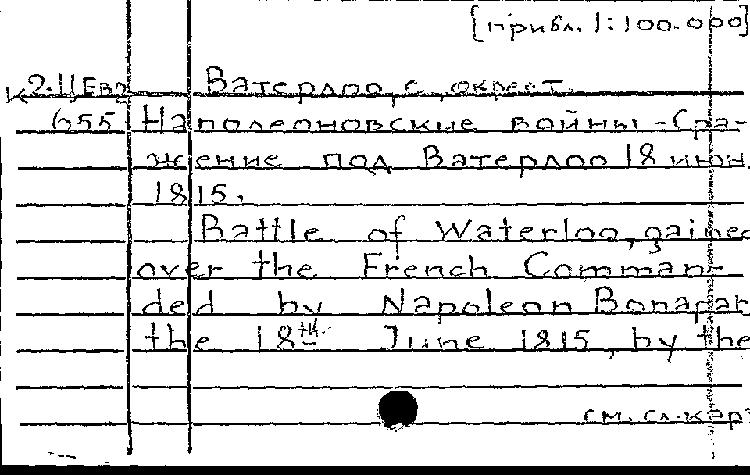 [прибл. 1:100.000]
К2.11Ев2 Ватерлоо, с окрест.
655 Наполеоновские войны - Сра-
жение под Ватерлоо 18 июн.
1815.
Battle of Waterloo, gained
over the French Comman-
ded by Napoleon Bonapar
the 18th June 1815, by the
см. сл. кар